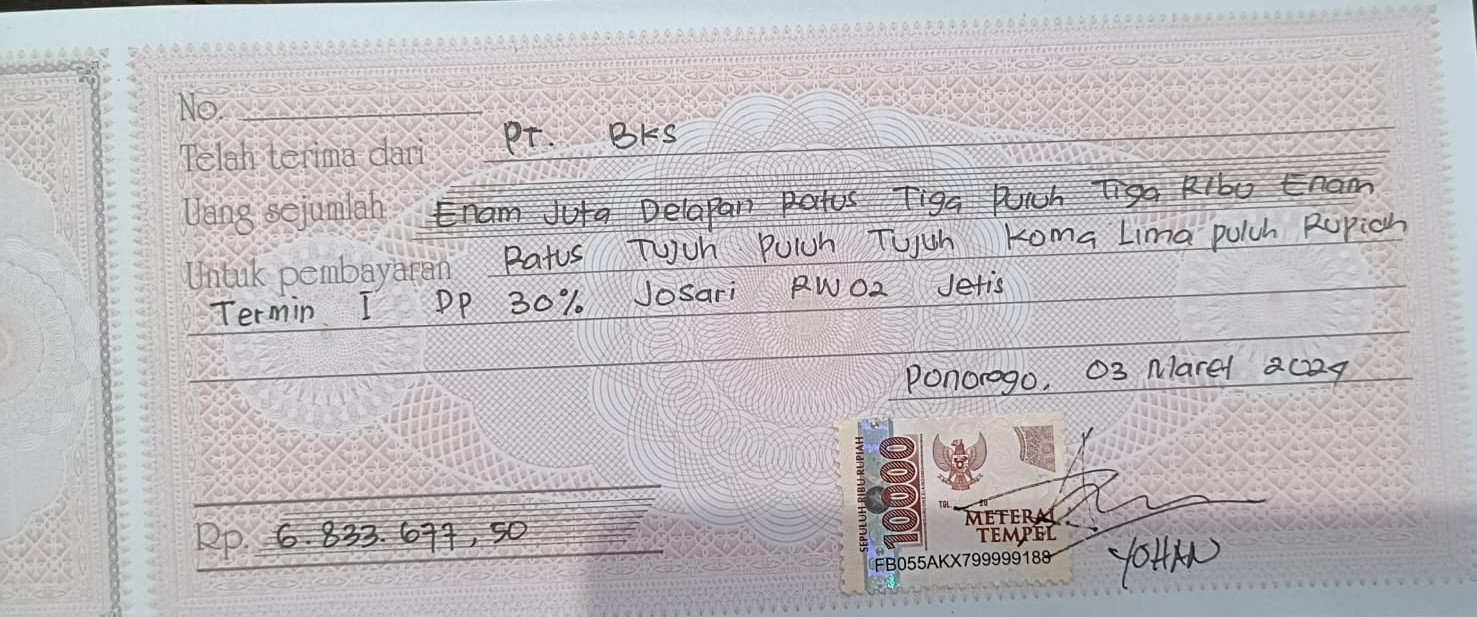 No.
Telah terima dari PT. BKS
Uang sejumlah Enam Juta Delapan Ratus Tiga Puluh Tiga Ribu Enam
Ratus Tujuh Puluh Tujuh Koma Lima puluh Rupiah
Untuk pembayaran
Termin I DP 30% Josari RW 02 Jetis
Ponorogo, 03 Maret 2024
SEPULUH RIBU RUPIAH
10000
TGL. 20
METERAI
TEMPEL
FB055AKX799999188
Rp. 6.833.677,50
YOHAN